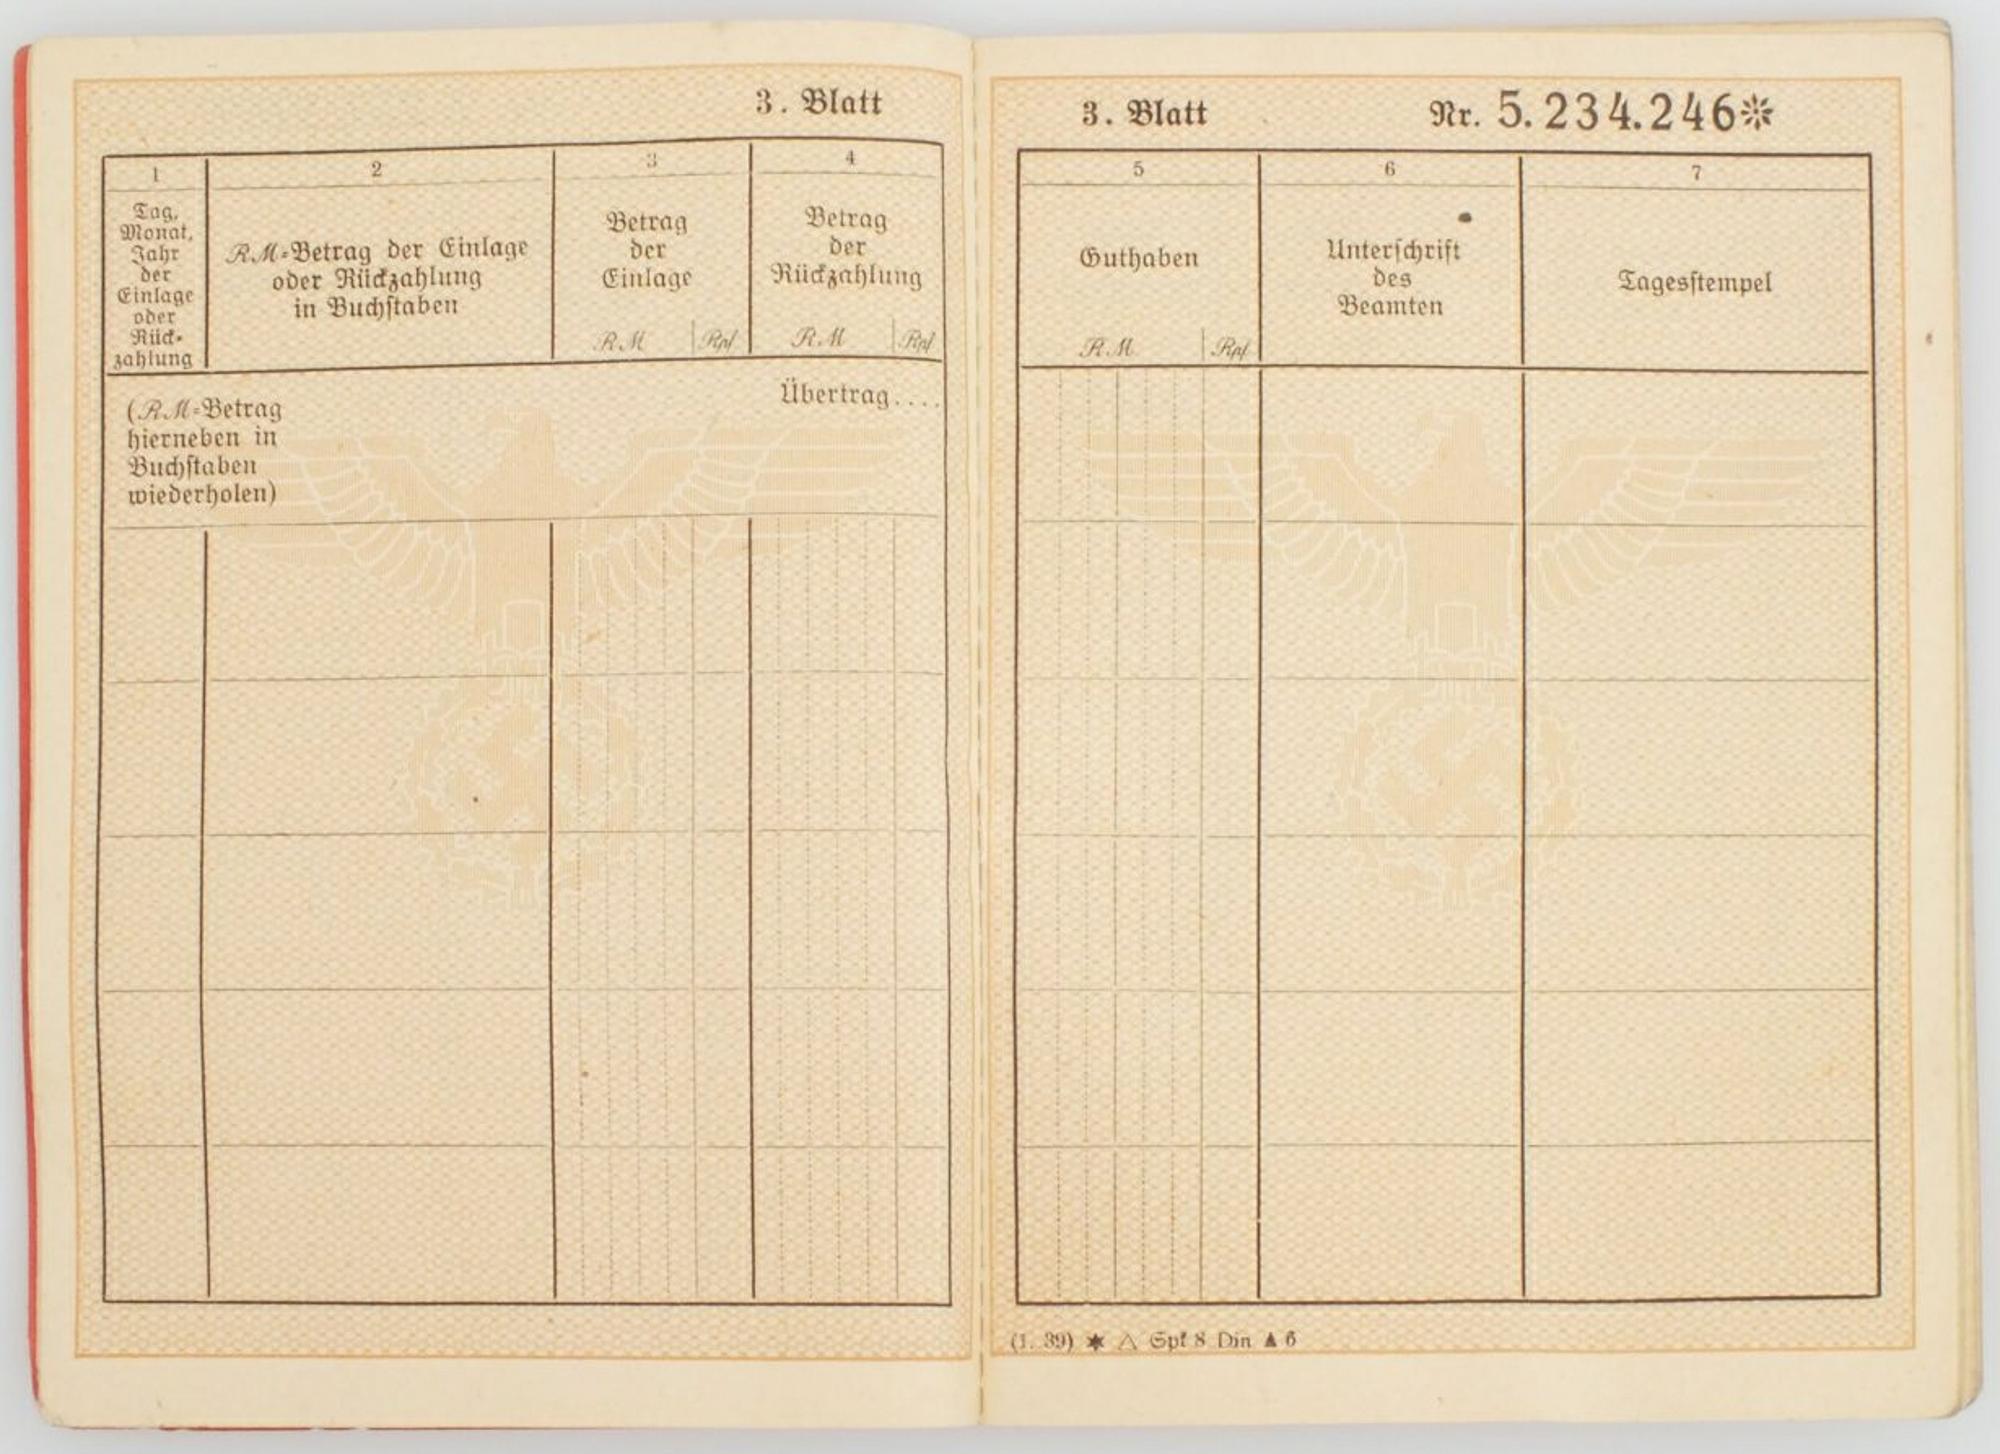 3. Blatt
1
2
3
4
Tag,
Monat,
Jahr
der
Einlage
oder
Rück-
zahlung
RM-Betrag der Einlage
oder Rückzahlung
in Buchstaben
Betrag
der
Einlage
RM Rpf
Betrag
der
Rückzahlung
RM Rpf
(RM-Betrag
hierneben in
Buchstaben
wiederholen)
Übertrag....
3. Blatt Nr. 5.234.246*
5
6
7
Guthaben
RM Rpf
Unterschrift
des
Beamten
Tagesstempel
(1. 39) ✶ △ Spk 8 Din ▲ 6